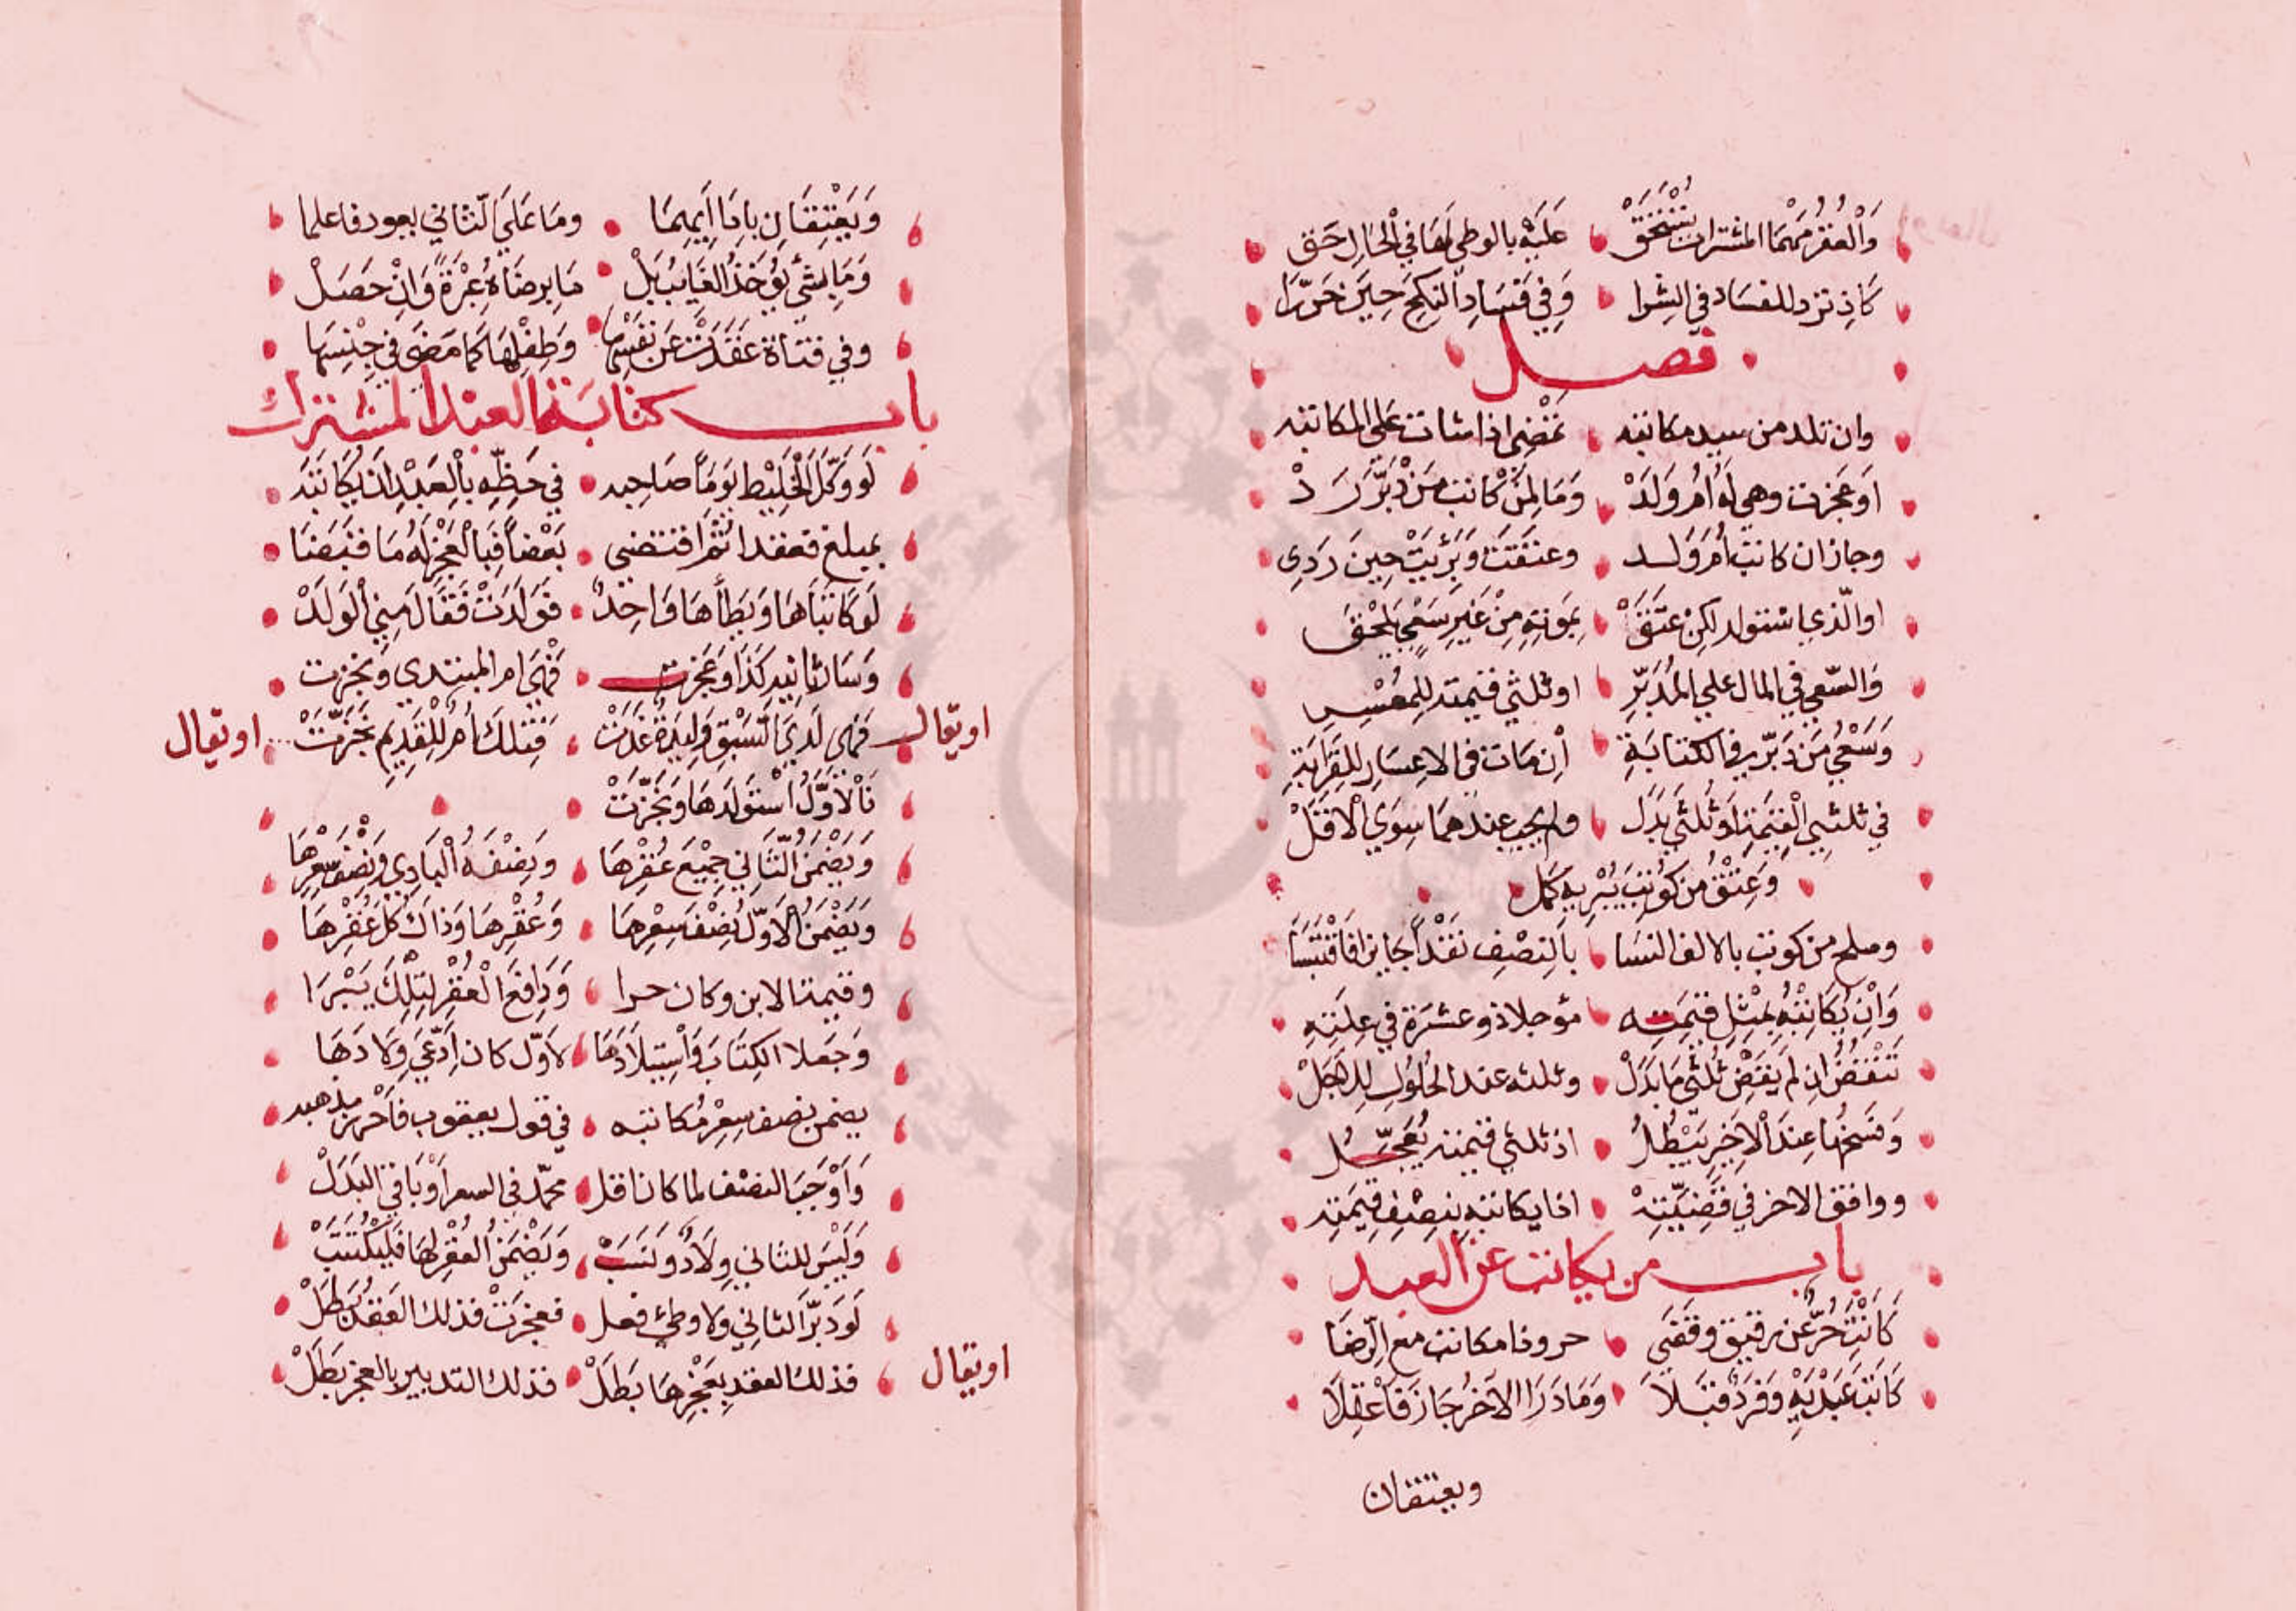 وَالْعُقْرُ مَهْمَا المشترات تُسْتَحَقْ عَلَيْهِ بالوطى لَهَا فِي الْحَالِ حَق
كَاِذْ تردللفسَاد في الشِرا وَفِي فَسَادِ النكح حِينَ حَرَّرَا
فصل
وان تلد من سيد مكاتبه تَمْضِى اذا شات عَلَى المكاتبه
اَو عَجزت وهي لَه اُمُ وَلَدْ وَمَا لِمَنْ كاتب مَنْ دَبَّرَ رَدْ
وجاز ان كاتب اُم وَلَد وعتقَتْ وَبَرِئَتْ حِينَ رَدِى
اوالّذي اسْتولد لكِنْ عتَقَ بِمَوتِهِ مِنْ غَيْرِ سَعْيٍ
وَالسَّعي في المال علي المُدَبِّرِ اوثلثي قيمته لِلمعْسِرِ
وَسَعْيُ مَن دَبَّر في الكتابَةِ اِن مَات في الاعسَارِ لِلقِرَابَةِ
في ثلثيي الْقِيَمِةِ اَوْ ثُلثي بَدَل ولم يجب عندهمَا سِوَي الْاَقَلْ
وَعِتْقُ من كوتِبَ بُرِّيهِ كَمَل
وصلح من كوتب بالالف النسَا بِالنِصْفِ نَقْداً جَايز
وَاِنْ يُكَاتِبْهُ بِمْثِلِ قيَمتِه مؤجلا ذو عشرَة في عِلَّتِهِ
تَنْقُضُ اِن لَمْ يَقْضِ ثُلثي مَا بَدَلْ وثلثه عند الحُلوُلِ لِلاَجَلْ
وَفسخُهَا عِنْدَ اْلاَخِير يَبْطُلُ اذ ثلثي قيمته يُعَجَّلُ
ووافق الاخر في قَضِيَّتِهْ اذا يكاتبه بنِصْفِ قِيمَتِه
باب من يكاتب عن العبد
كَاتَبَ حُرٌّ عَن رقيق وقَضَي حر وذا مكاتب مع الرّضَا
كَاتَبَ عَبْدَيْهِ وَفَرْدٌ قبَلاَ وَمَا دَرَا الآخَرُ جَاز فَاعْقِلاَ
ويعتقان
وَيَعْتِقَانِ بِاِدَا اَيِهِمَا ومَا عَلَي الثّاني يعود فاعلما
وَمَا بِشَيْءٍ يُؤخَذُ الغَايبُ بَلْ مَا بِرضَاهُ عِبْرَةً وَاِنْ حَصَلْ
وفي فتاة عَقَدَتْ عَن نَفْسِهَا وَطِفْلِهَا كَمَا مَضَي في جِنْسِهَا
باب كتابة العبد المشترك
لَوْ وَكَّلَ الْخَلِيْط يَومَاً صَاحِبه في حَظِّهِ بِاْلعَبْدِ اَنْ يُكَاتَبَه
بمبلغ فعقدا ثم اقتضي بَعْضاً فَبِالْعَجْزِ لَهُ مَا قبَضَا
لَوْ كَاتَبَاهَا وَيَطَأْهَا وَاحِدٌ فَوَلَدَتْ فَقَالَ مِنِي الوَلَدْ
وَسَار ثانيه كَذَا وَعَجزت فَهْيَ ام المبتدي ونجزت
اويقال فَهى لَدَي السَّبْقِ وَلِيدَةٌ غَدَتْ فَتلك اُمٌ لِلْقَدِيمِ نَجُزَتْ اويقال
فَاْلاَوَّلُ اْستَولَدَهَا وَنَجَّزَتْ
وَيَضْمَنُ الثَّانِي جمِيْعَ عُقْرِهَا وَنِصْفَهُ الْبَادِي وَنِصْفَ سِعْرِهَا
وَيَضْمَنُ اْلاَوّل نِصْفَ سِعْرِهَا وَعُقْرِهَا وَذَاكَ كُلَ عُقْرِهَا
وقيمة الابن وكان حرا وَدَافِعُ الْعُقْرِ لِتِلْكَ يَبْرَا
وَجَعلا الكِتَابَ وَاْسِتيلاَدَهَا لاَوّل كان اِدَّعَي وِلاَدَهَا
يضمن نصف سِعْرِ مُكاتبه في قول يعقوب مذهبه
وَاَوْجَبَ النصف لما كان اقل محمّد في السعر اَوْ بَاقي البَدَلْ
وَلَيْسَ للثاني وِلاَدٌ وَنَسَبْ وَيَضْمَنُ العُقْرَ لهَا فَلِيُكْتَتَبْ
لَوْ دَبَّرَ الثاني ولا وطئ فعل فعجزَتْ فذلك العَقْدُ بَطَلْ
اويقال فذلك العقد بِعَجْزِهَا بَطَلْ فذلك التدبير بالعجز بَطَلْ